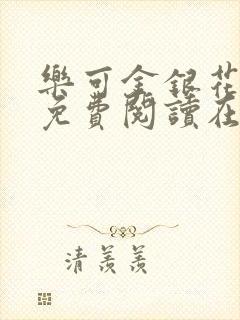 樂可金銀花
免費閱讀在
清羨羨